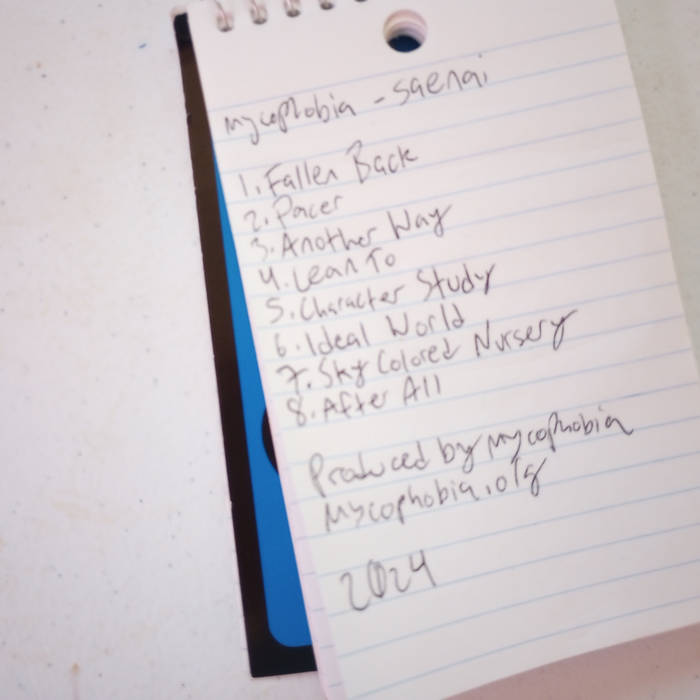 mycophobia - saenai
1. Fallen Back
2. Pacer
3. Another Way
4. Lean To
5. Character Study
6. Ideal World
7. Sky Colored Nursery
8. After All
Produced by mycophobia
mycophobia.org
2024